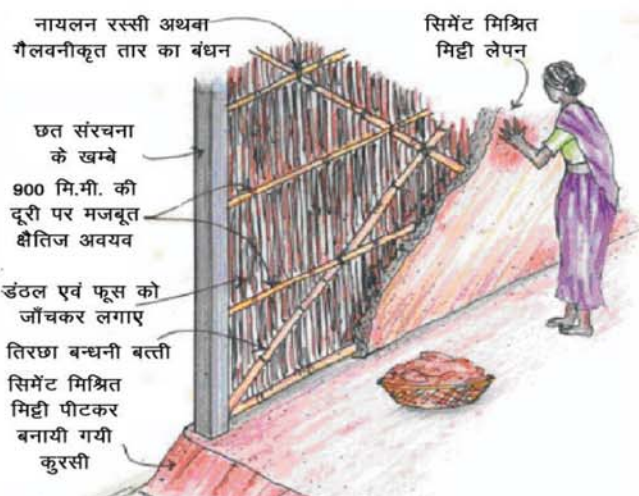 नायलन रस्सी अथबा
गैलवनीकृत तार का बंधन
सिमेंट मिश्रित
मिट्टी लेपन
छत संरचना
के खम्बे
900 मि.मी. की
दूरी पर मजबूत
क्षैतिज अवयव
डंठल एवं फूस को
जाँचकर लगाए
तिरछा बन्धनी बत्ती
सिमेंट मिश्रित
मिट्टी पीटकर
बनायी गयी
कुरसी